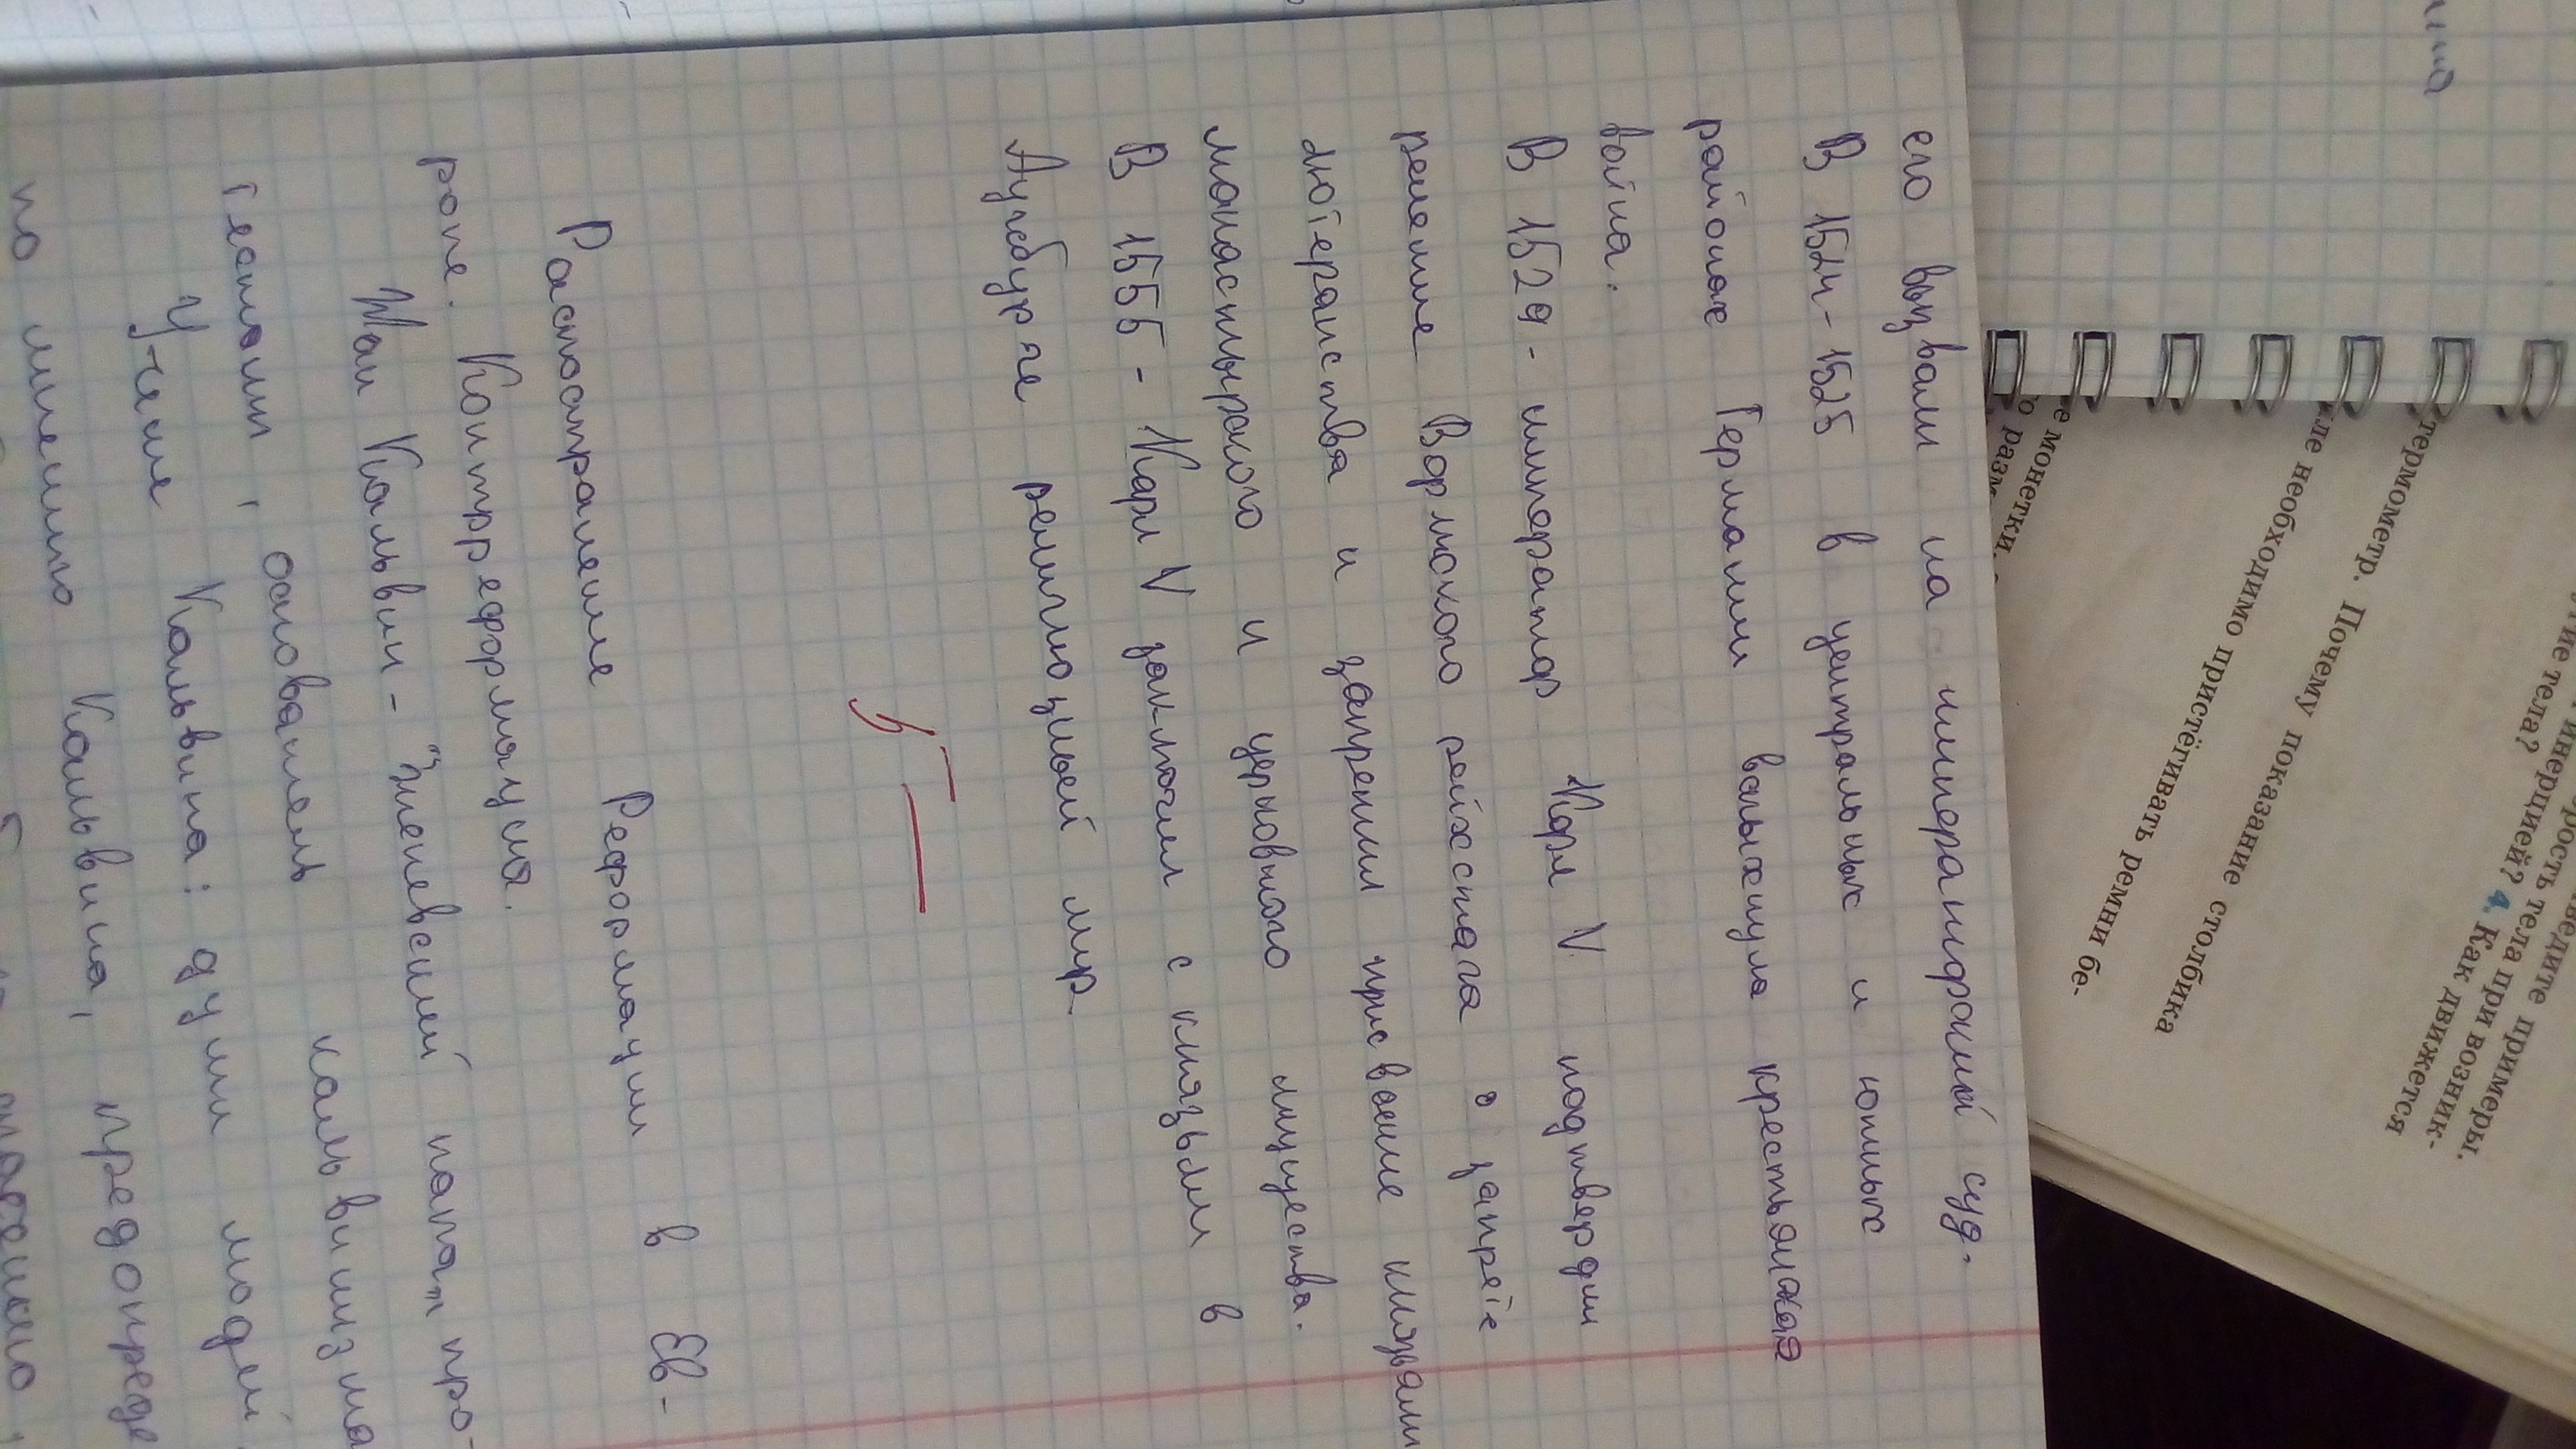 его вызвали на императорский суд.
В 1524-1525 в центральных и южных
районах Германии вспыхнула крестьянская
война.
В 1529 - император Карл V подтвердил
решение Вормского рейхстага о запрете
лютеранства и запретил присвоение князьями
монастырского и церковного имущества.
В 1555 - Карл V заключил с князьями в
Аугсбурге религиозный мир.
5-
Распостранение Реформации в Ев-
ропе. Контрреформация.
Жан Кальвин - "Женевский папа" про-
тестант, основатель кальвинизма
Учение Кальвина: души людей
по мнению Кальвина, предопреде
е монетки.
о разм
термометр. Почему показание столбика
ле необходимо пристёгивать ремни бе-
ведите примеры.
рость тела при возник-
инерцией? 4. Как движется
гие тела?